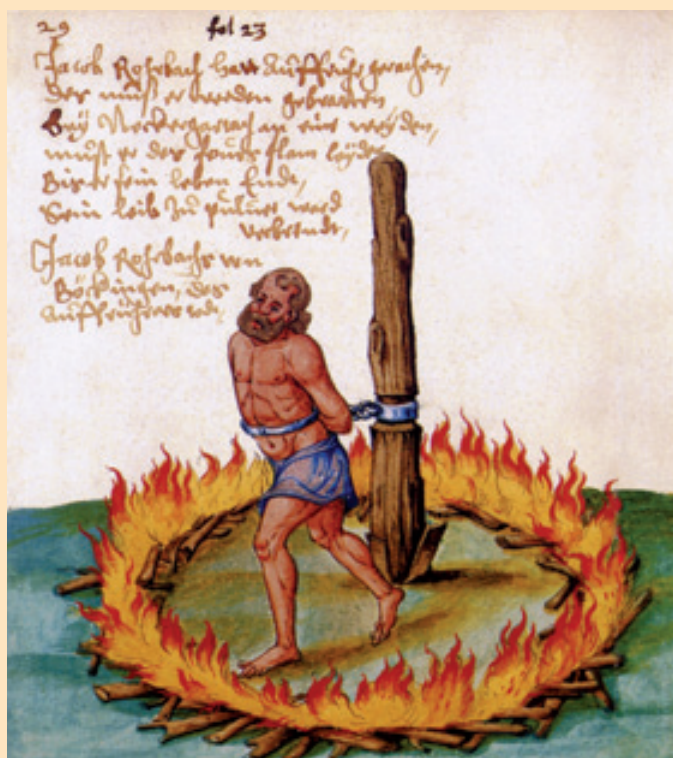 29 fol 23
Jacob Rohrbach hatt Auffruhr gemachen,
des muß er werden gebratten
Bey Neckergartach an ein weyden,
mußt er des feurs flam leyden
Bis er sein leben Endt,
Sein leib zu puluer ward
verbrendt,
Jacob Rohrbachs von
Böckingen, des
Auffrührers todt,